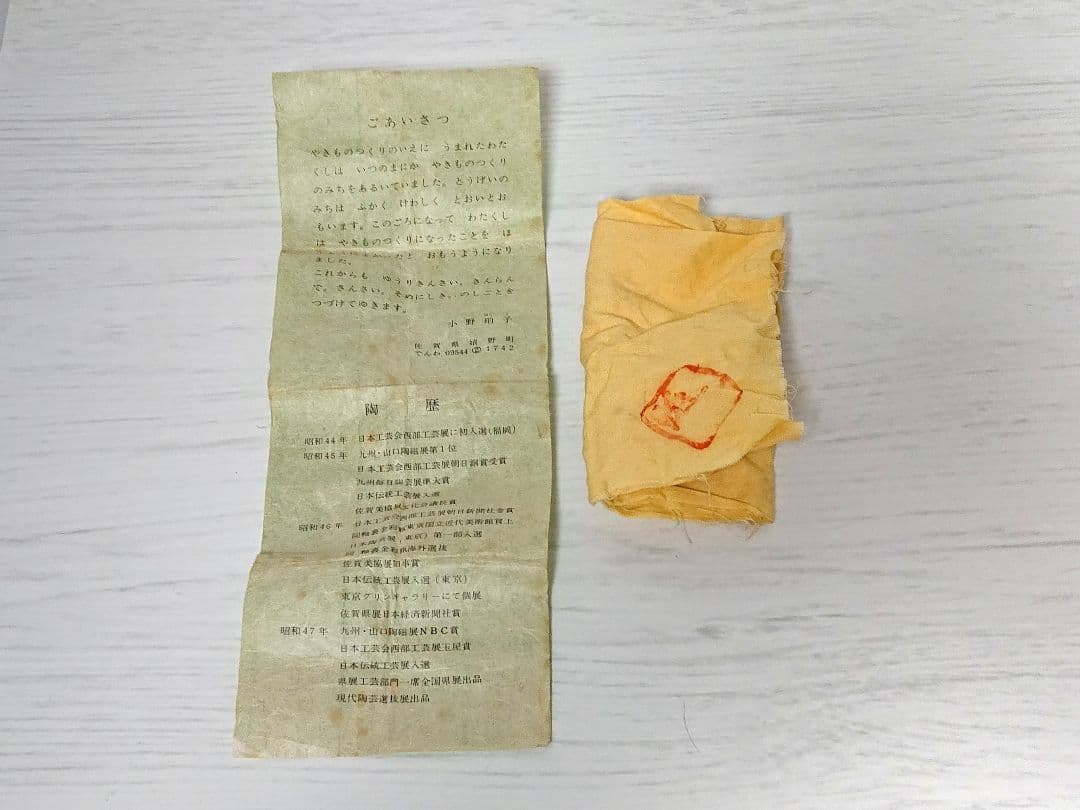 ごあいさつ
やきものつくりのいえに うまれたわた
くしは いつのまにか やきものつくり
のみちをあるいていました。とうげいの
みちは ふかく けわしく とおいとお
もいます。このごろになって わたくし
は やきものつくりになったことを ほ
たと おもうようになり
ました。
これからも ゆうりきんさい。きんらん
で。さんさい。そめにしき。のしごとを
つづけてゆきます。
小野珀子
佐賀県嬉野町
でんわ 09544②1742
陶歴
昭和44年 日本工芸会西部工芸展に初入選(福岡)
昭和45年 九州・山口陶磁展第1位
日本工芸会西部工芸展朝日新聞賞受賞
九州毎日陶芸展準大賞
日本伝統工芸展入選
佐賀美協展文化会議長賞
昭和46年 日本工芸会西部工芸展朝日新聞社金賞
東京国立近代美術館買上
東京)第一部入選
海外選抜
佐賀美協展知事賞
日本伝統工芸展入選(東京)
東京グリンギャラリーにて個展
佐賀県展日本経済新聞社賞
昭和47年 九州・山口陶磁展NBC賞
日本工芸会西部工芸展玉屋賞
日本伝統工芸展入選
県展工芸部門一席全国県展出品
現代陶芸選抜展出品